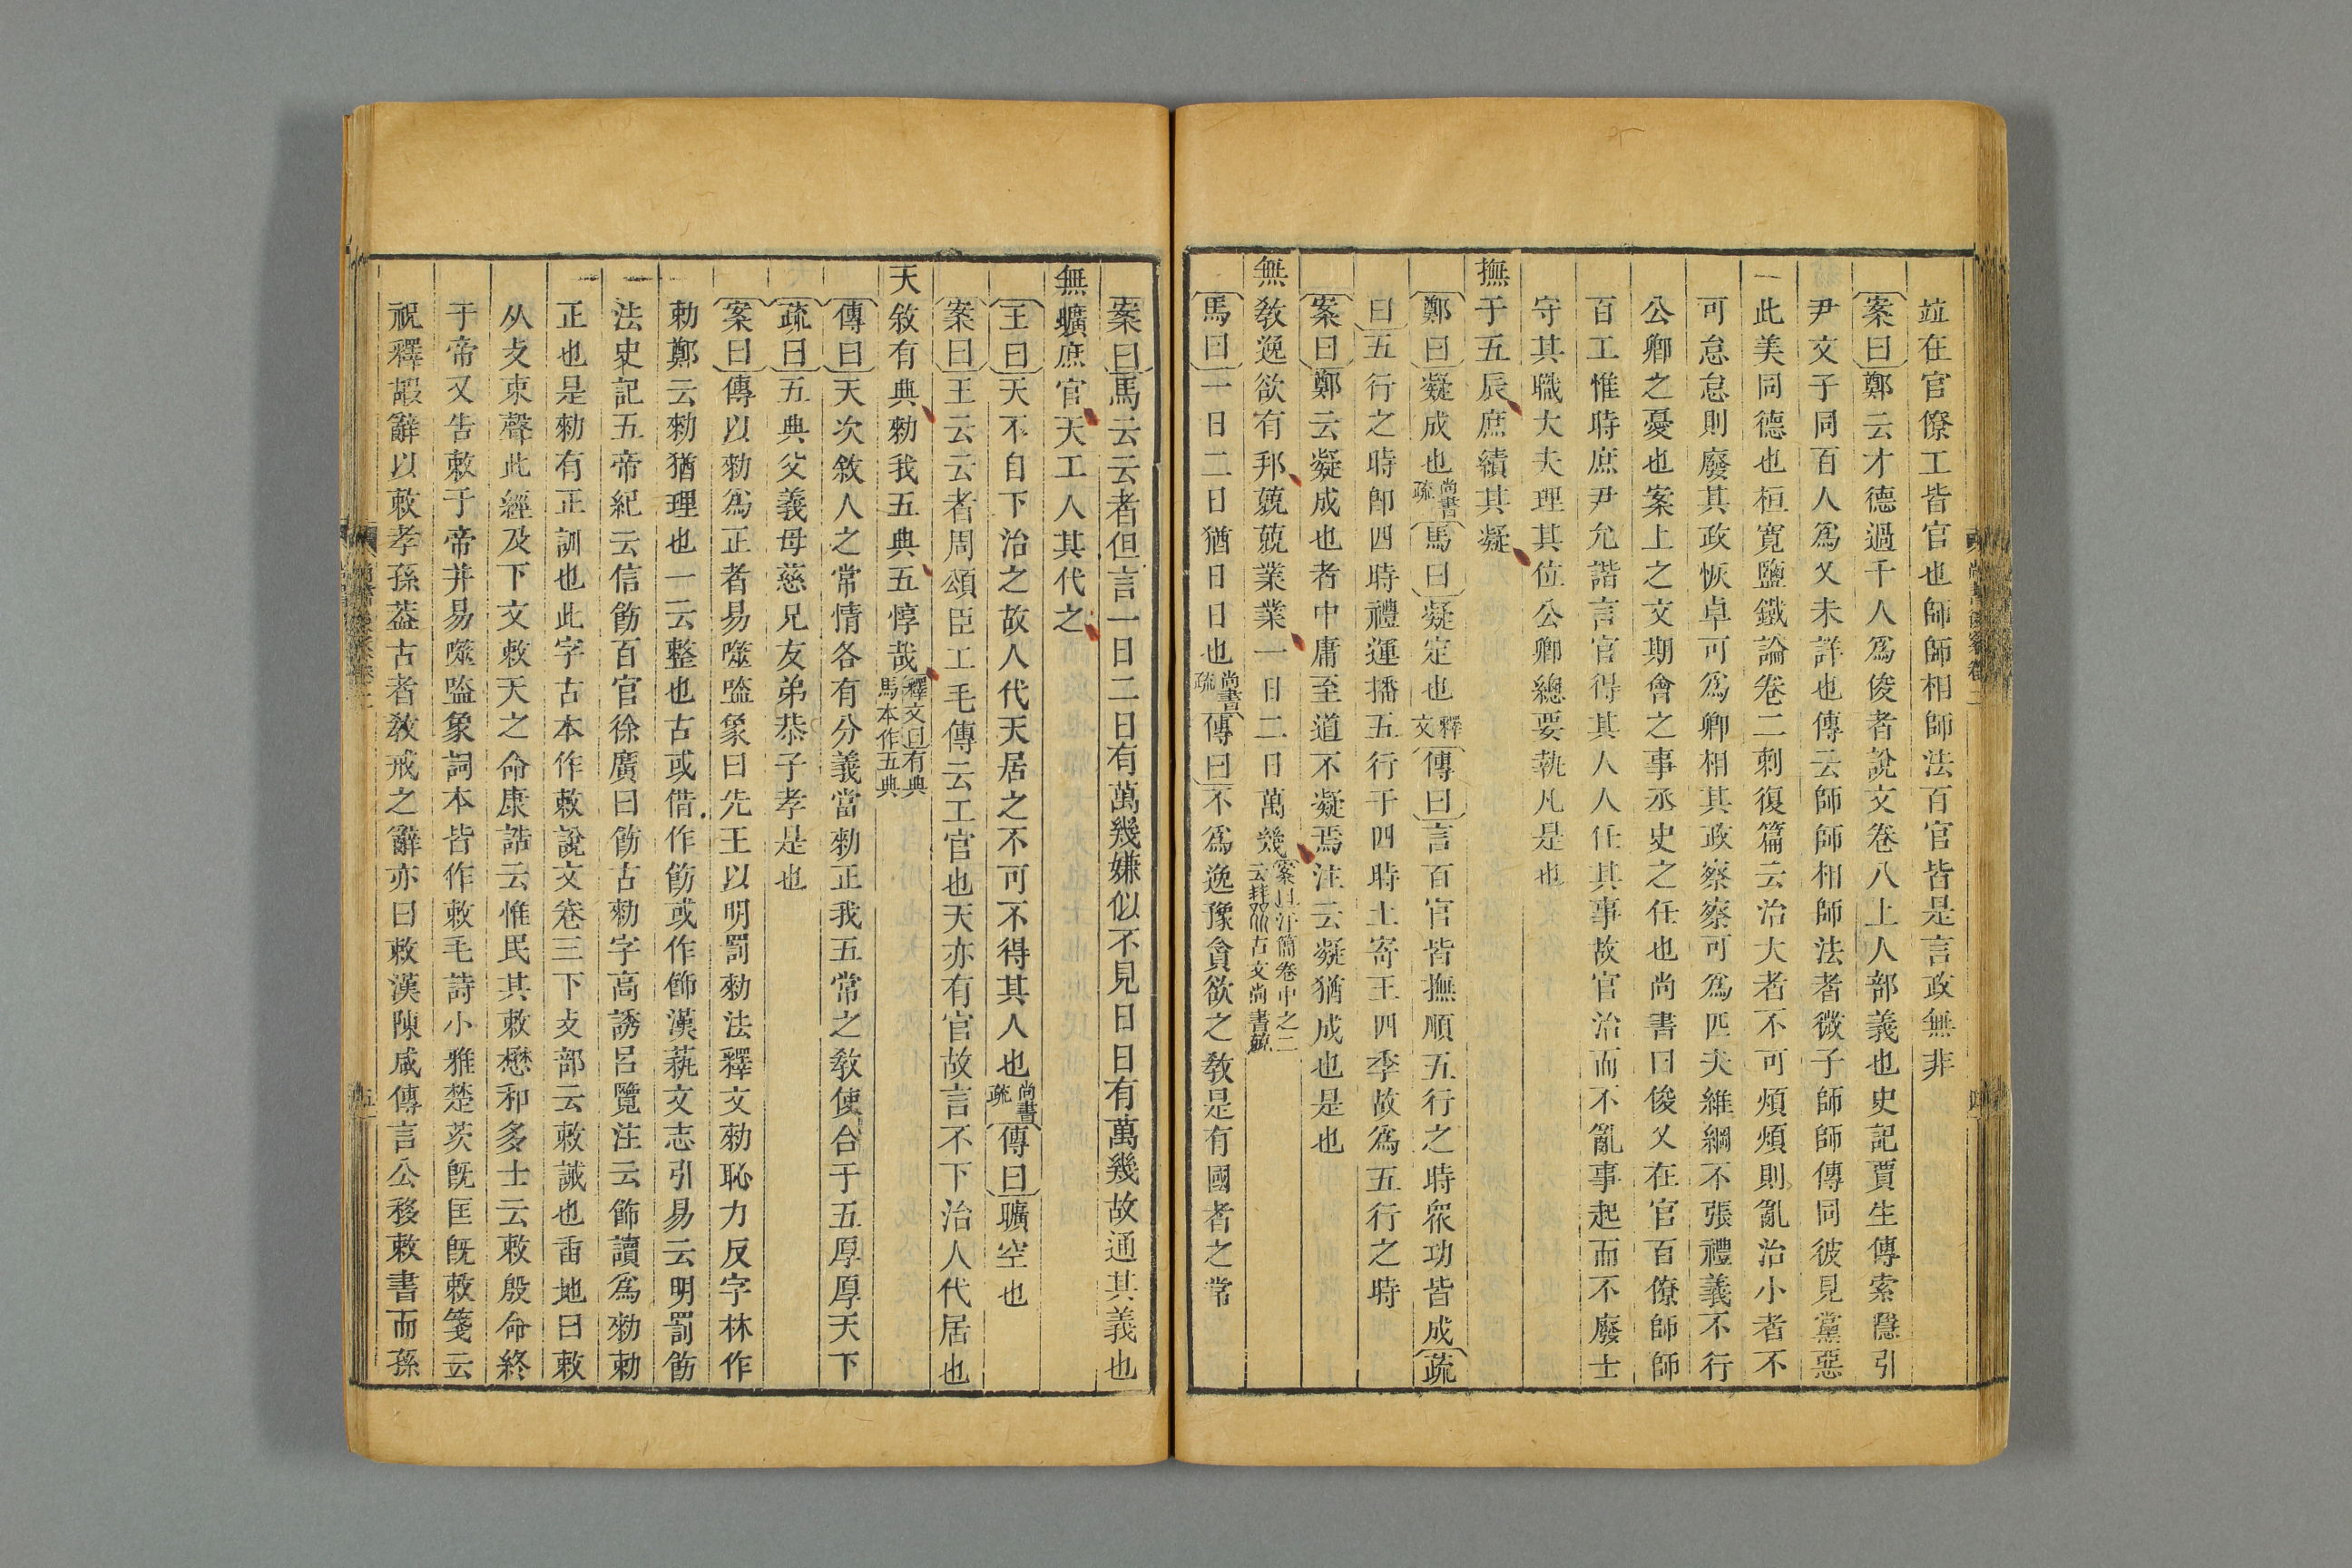 竝在官僚工皆官也師師相師法百官皆是言政無非
案曰鄭云才德過千人爲俊者說文卷八上人部義也史記賈生傳索隱引
尹文子同百人爲乂未詳也傳云師師相師法者微子師師傳同彼見黨惡
此美同德也桓寬鹽鐵論卷二刺復篇云治大者不可煩煩則亂治小者不
可怠怠則廢其政恢卓可爲卿相其政察察可爲匹夫維綱不張禮義不行
公卿之憂也案上之文期會之事丞史之任也尚書曰俊乂在官百僚師師
百工惟時庶尹允諧言官得其人人任其事故官治而不亂事起而不廢士
守其職大夫理其位公卿總要執凡是也
撫于五辰庶績其凝
鄭曰凝成也尚書疏馬曰凝定也釋文傳曰言百官皆撫順五行之時衆功皆成疏
曰五行之時卽四時禮運播五行于四時土寄王四季故爲五行之時
案曰鄭云凝成也者中庸至道不凝焉注云凝猶成也是也
無敎逸欲有邦兢兢業業一日二日萬幾案曰汗簡卷中之二云古文尚書
馬曰一日二日猶日日也尚書疏傳曰不爲逸豫貪欲之敎是有國者之常
四
案曰馬云云者但言一日二日有萬幾嫌似不見日日有萬幾故通其義也
無曠庶官天工人其代之
王曰天不自下治之故人代天居之不可不得其人也尚書疏傳曰曠空也
案曰王云云者周頌臣工毛傳云工官也天亦有官故言不下治人代居也
天敘有典勑我五典五惇哉釋文曰有典馬本作五典
傳曰天次敘人之常情各有分義當勑正我五常之敎使合于五厚厚天下
疏曰五典父義母慈兄友弟恭子孝是也
案曰傳以勑爲正者易噬嗑象曰先王以明罰勑法釋文勑恥力反字林作
勅鄭云勑猶理也一云整也古或借作飭或作飾漢蓺文志引易云明罰飭
法史記五帝紀云信飭百官徐廣曰飭古勑字高誘呂覽注云飾讀爲勑勅
正也是勑有正訓也此字古本作敕說文卷三下攴部云敕誡也臿地曰敕
从攴束聲此經及下文敕天之命康誥云惟民其敕懋和多士云敕殷命終
于帝又告敕于帝并易噬嗑象詞本皆作敕毛詩小雅楚茨旣匡旣敕箋云
祝釋嘏辭以敕孝孫葢古者敎戒之辭亦曰敕漢陳咸傳言公移敕書而孫
五